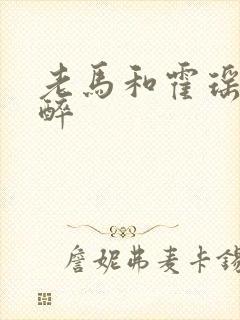 老馬和霍瑶
醉
詹妮弗麦卡錫